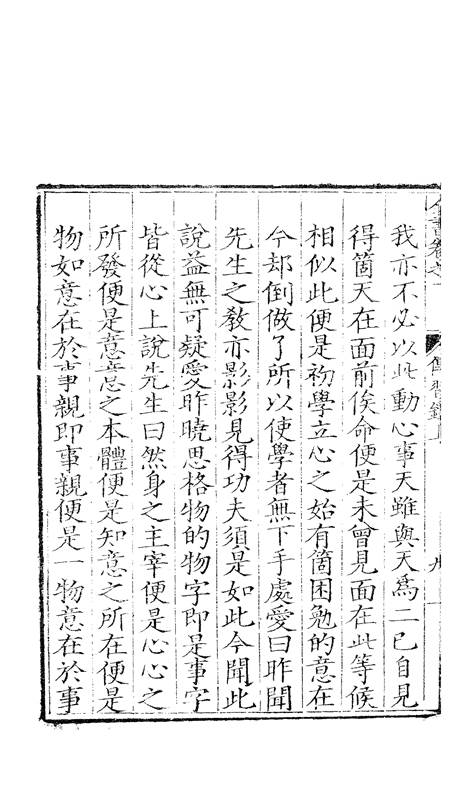 全書卷之一 傳習錄上 九
我亦不必以此動心事天雖與天爲二已自見
得箇天在面前俟命便是未曾見面在此等候
相似此便是初學立心之始有箇困勉的意在
今却倒做了所以使學者無下手處愛曰昨聞
先生之教亦影影見得功夫須是如此今聞此
說益無可疑愛昨曉思格物的物字即是事字
皆從心上說先生曰然身之主宰便是心心之
所發便是意意之本體便是知意之所在便是
物如意在於事親即事親便是一物意在於事